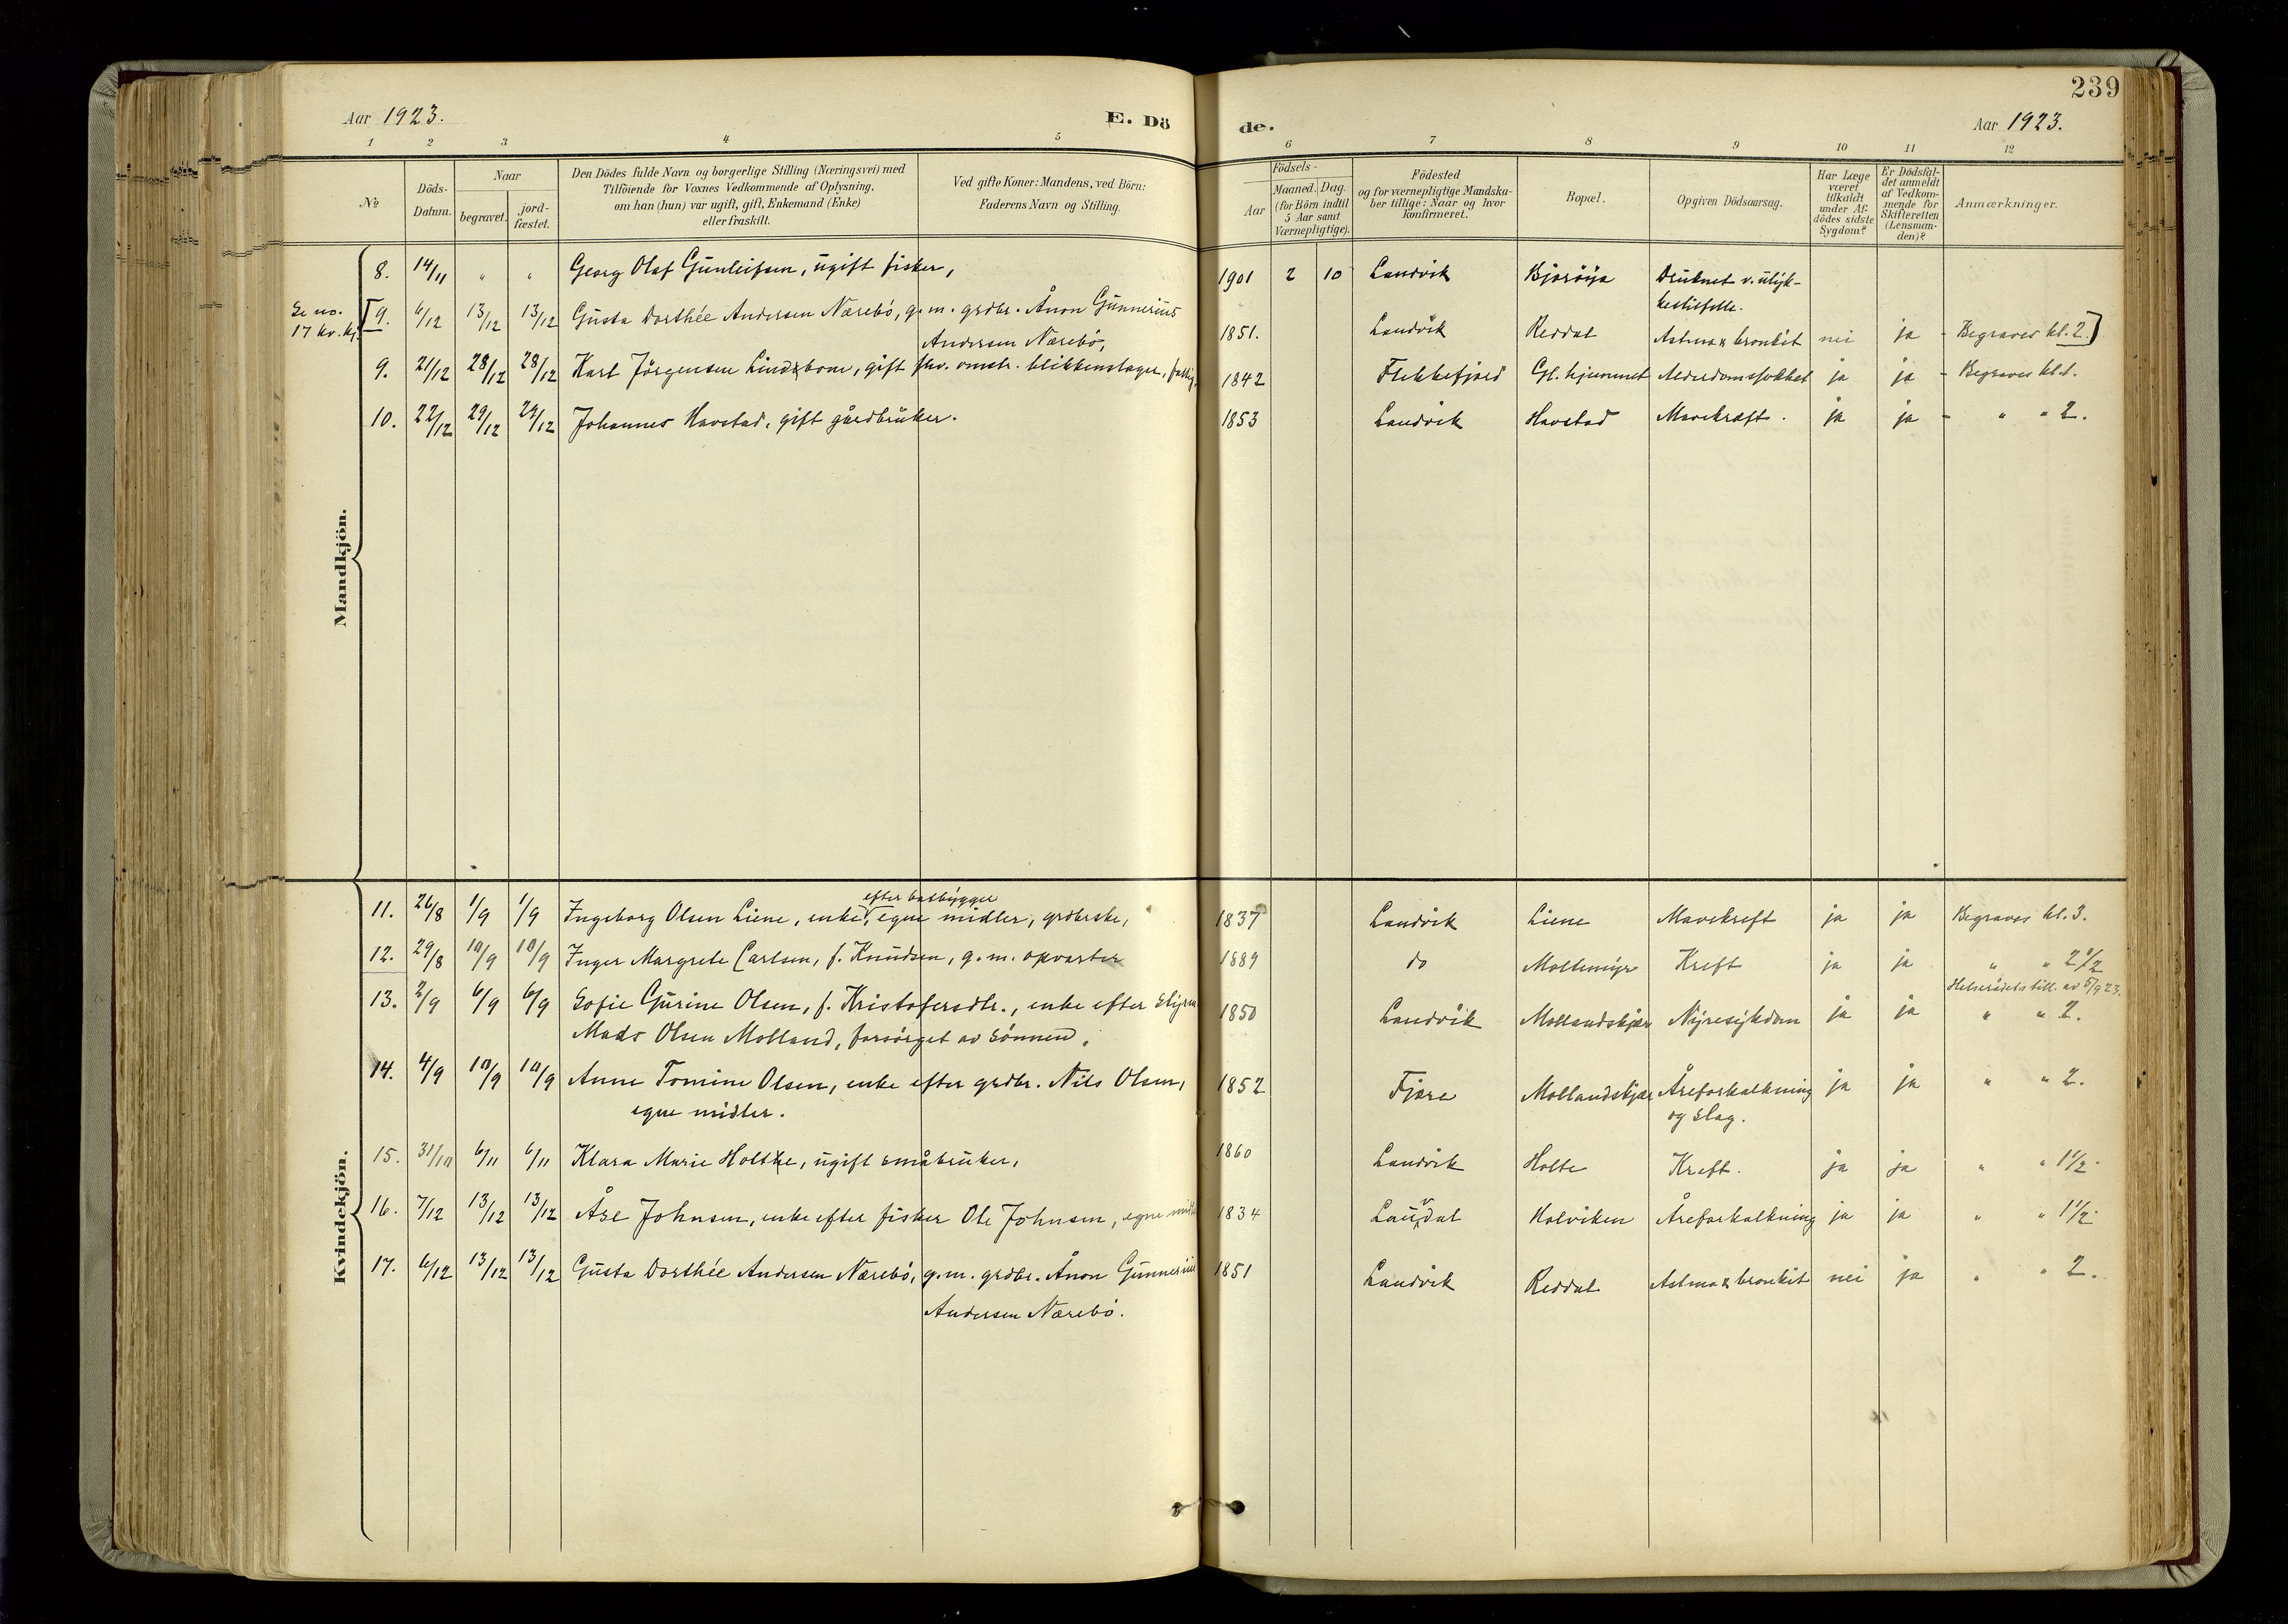 239
Aar 1923.
E. Dö
de.
Aar 1923.
1 2 3 4 5 6 7 8 9 10 11 12
No
Döds-
Datum.
Naar
begravet.
jord-
fæstet.
Den Dödes fulde Navn og borgerlige Stilling (Næringsvei) med
Tilföiende for Voxnes Vedkommende af Oplysning,
om han (hun) var ugift, gift, Enkemand (Enke)
eller fraskilt.
Ved gifte Koner: Mandens, ved Börn:
Faderens Navn og Stilling.
Födsels-
Aar
Maaned. Dag.
(for Börn indtil
5 Aar samt
Værnepligtige).
Födested
og for værnepligtige Mandska-
ber tillige: Naar og hvor
konfirmeret.
Bopæl.
Opgiven Dödsaarsag.
Har Læge
været
tilkaldt
under Af-
dödes sidste
Sygdom?
Er Dödsfal-
det anmeldt
af Vedkom-
mende for
Skifteretten
(Lensman-
den)?
Anmærkninger.
Mandkjön.
8. 14/11 " " Georg Olaf Gunleifsen, ugift fisker, 1901 2 10 Landvik Bjorøya Druknet v. ulyk-
kestilfelle.
Se no.
17 kv.kj.
[9. 6/12 13/12 13/12 Gusta Dorthée Andersen Nærebø, g. m. grdbr. Ånon Gunnerius
Andersen Nærebø, 1851. Landvik Reddal Astma & bronkit nei ja - Begraves kl. 2.]
9. 21/12 28/12 28/12 Karl Jörgensen Lindbom, gift fhv. omstr. blikkenslager, 1842 Flekkefjord Gl. hjemmet Alderdomssvakhet ja ja - Begraves kl. 1.
10. 22/12 29/12 29/12 Johannes Havstad, gift gårdbruker. 1853 Landvik Havstad Mavekræft. ja ja - " " 2.
Kvindekjön.
11. 26/8 1/9 1/9 Ingeborg Olsen Liene, enke efter båtbygger, egne midler, grdbrske, 1837 Landvik Liene Mavekreft ja ja Begraves kl. 3.
12. 29/8 10/9 10/9 Inger Margrete Carlsen, f. Knudsen, g. m. opvarter 1889 do Moltemyr Kreft ja ja " " 2 1/2
Helserådets till. av 5/9 23.
13. 2/9 6/9 6/9 Sofie Gurine Olsen, f. Kristofersdtr., enke efter styrm 1850 Landvik Mollandskjær Nyresykdom ja ja " " 2.
Mads Olsen Molland, forsørget av sønnen.
14. 4/9 10/9 10/9 Anne Tomine Olsen, enke efter grdbr. Nils Olsen, 1852 Fjære Mollandskjær Åreforkalkning ja ja " " 2.
egne midler.
og slag.
15. 31/10 6/11 6/11 Klara Marie Holte, ugift småbruker, 1860 Landvik Holte Kreft. ja ja " " 1 1/2.
16. 7/12 13/12 13/12 Åse Johnsen, enke efter fisker Ole Johnsen, egne 1834 Lauvdal Holviken Åreforkalkning ja ja " " 1 1/2.
17. 6/12 13/12 13/12 Gusta Dorthée Andersen Nærebø, g. m. grdbr. Ånon Gunnerius 1851 Landvik Reddal Astma & bronkit nei ja " " 2.
Andersen Nærebø.